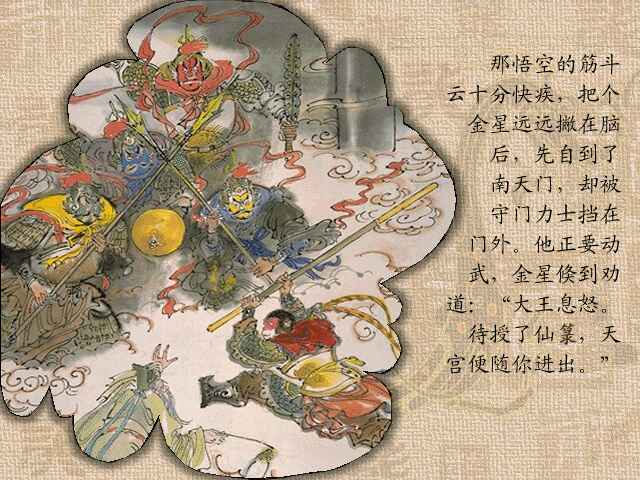 那悟空的筋斗
云十分快疾，把个
金星远远撇在脑
后，先自到了
南天门，却被
守门力士挡在
门外。他正要动
武，金星倏到劝
道：“大王息怒。
待授了仙箓，天
宫便随你进出。”